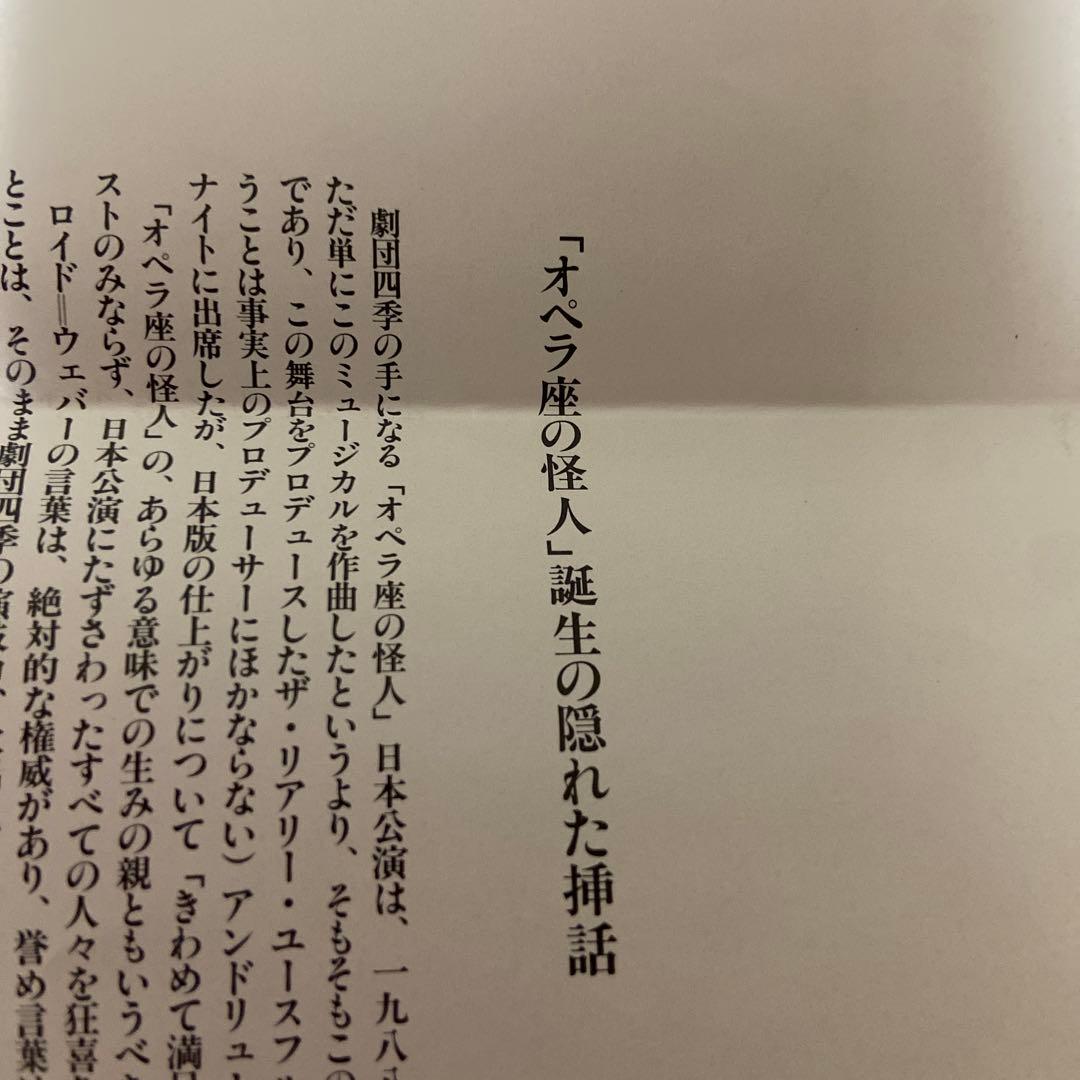 「オペラ座の怪人」誕生の隠れた挿話
劇団四季の手になる「オペラ座の怪人」日本公演は、一九八
ただ単にこのミュージカルを作曲したというより、そもそもこの
であり、この舞台をプロデュースしたザ・リアリー・ユースフ
うことは事実上のプロデューサーにほかならない）アンドリュー
ナイトに出席したが、日本版の仕上がりについて「きわめて満
「オペラ座の怪人」の、あらゆる意味での生みの親ともいうべ
ストのみならず、日本公演にたずさわったすべての人々を狂喜
ロイド＝ウェバーの言葉は、絶対的な権威があり、誉め言葉
とことは、そのまま劇団四季の演